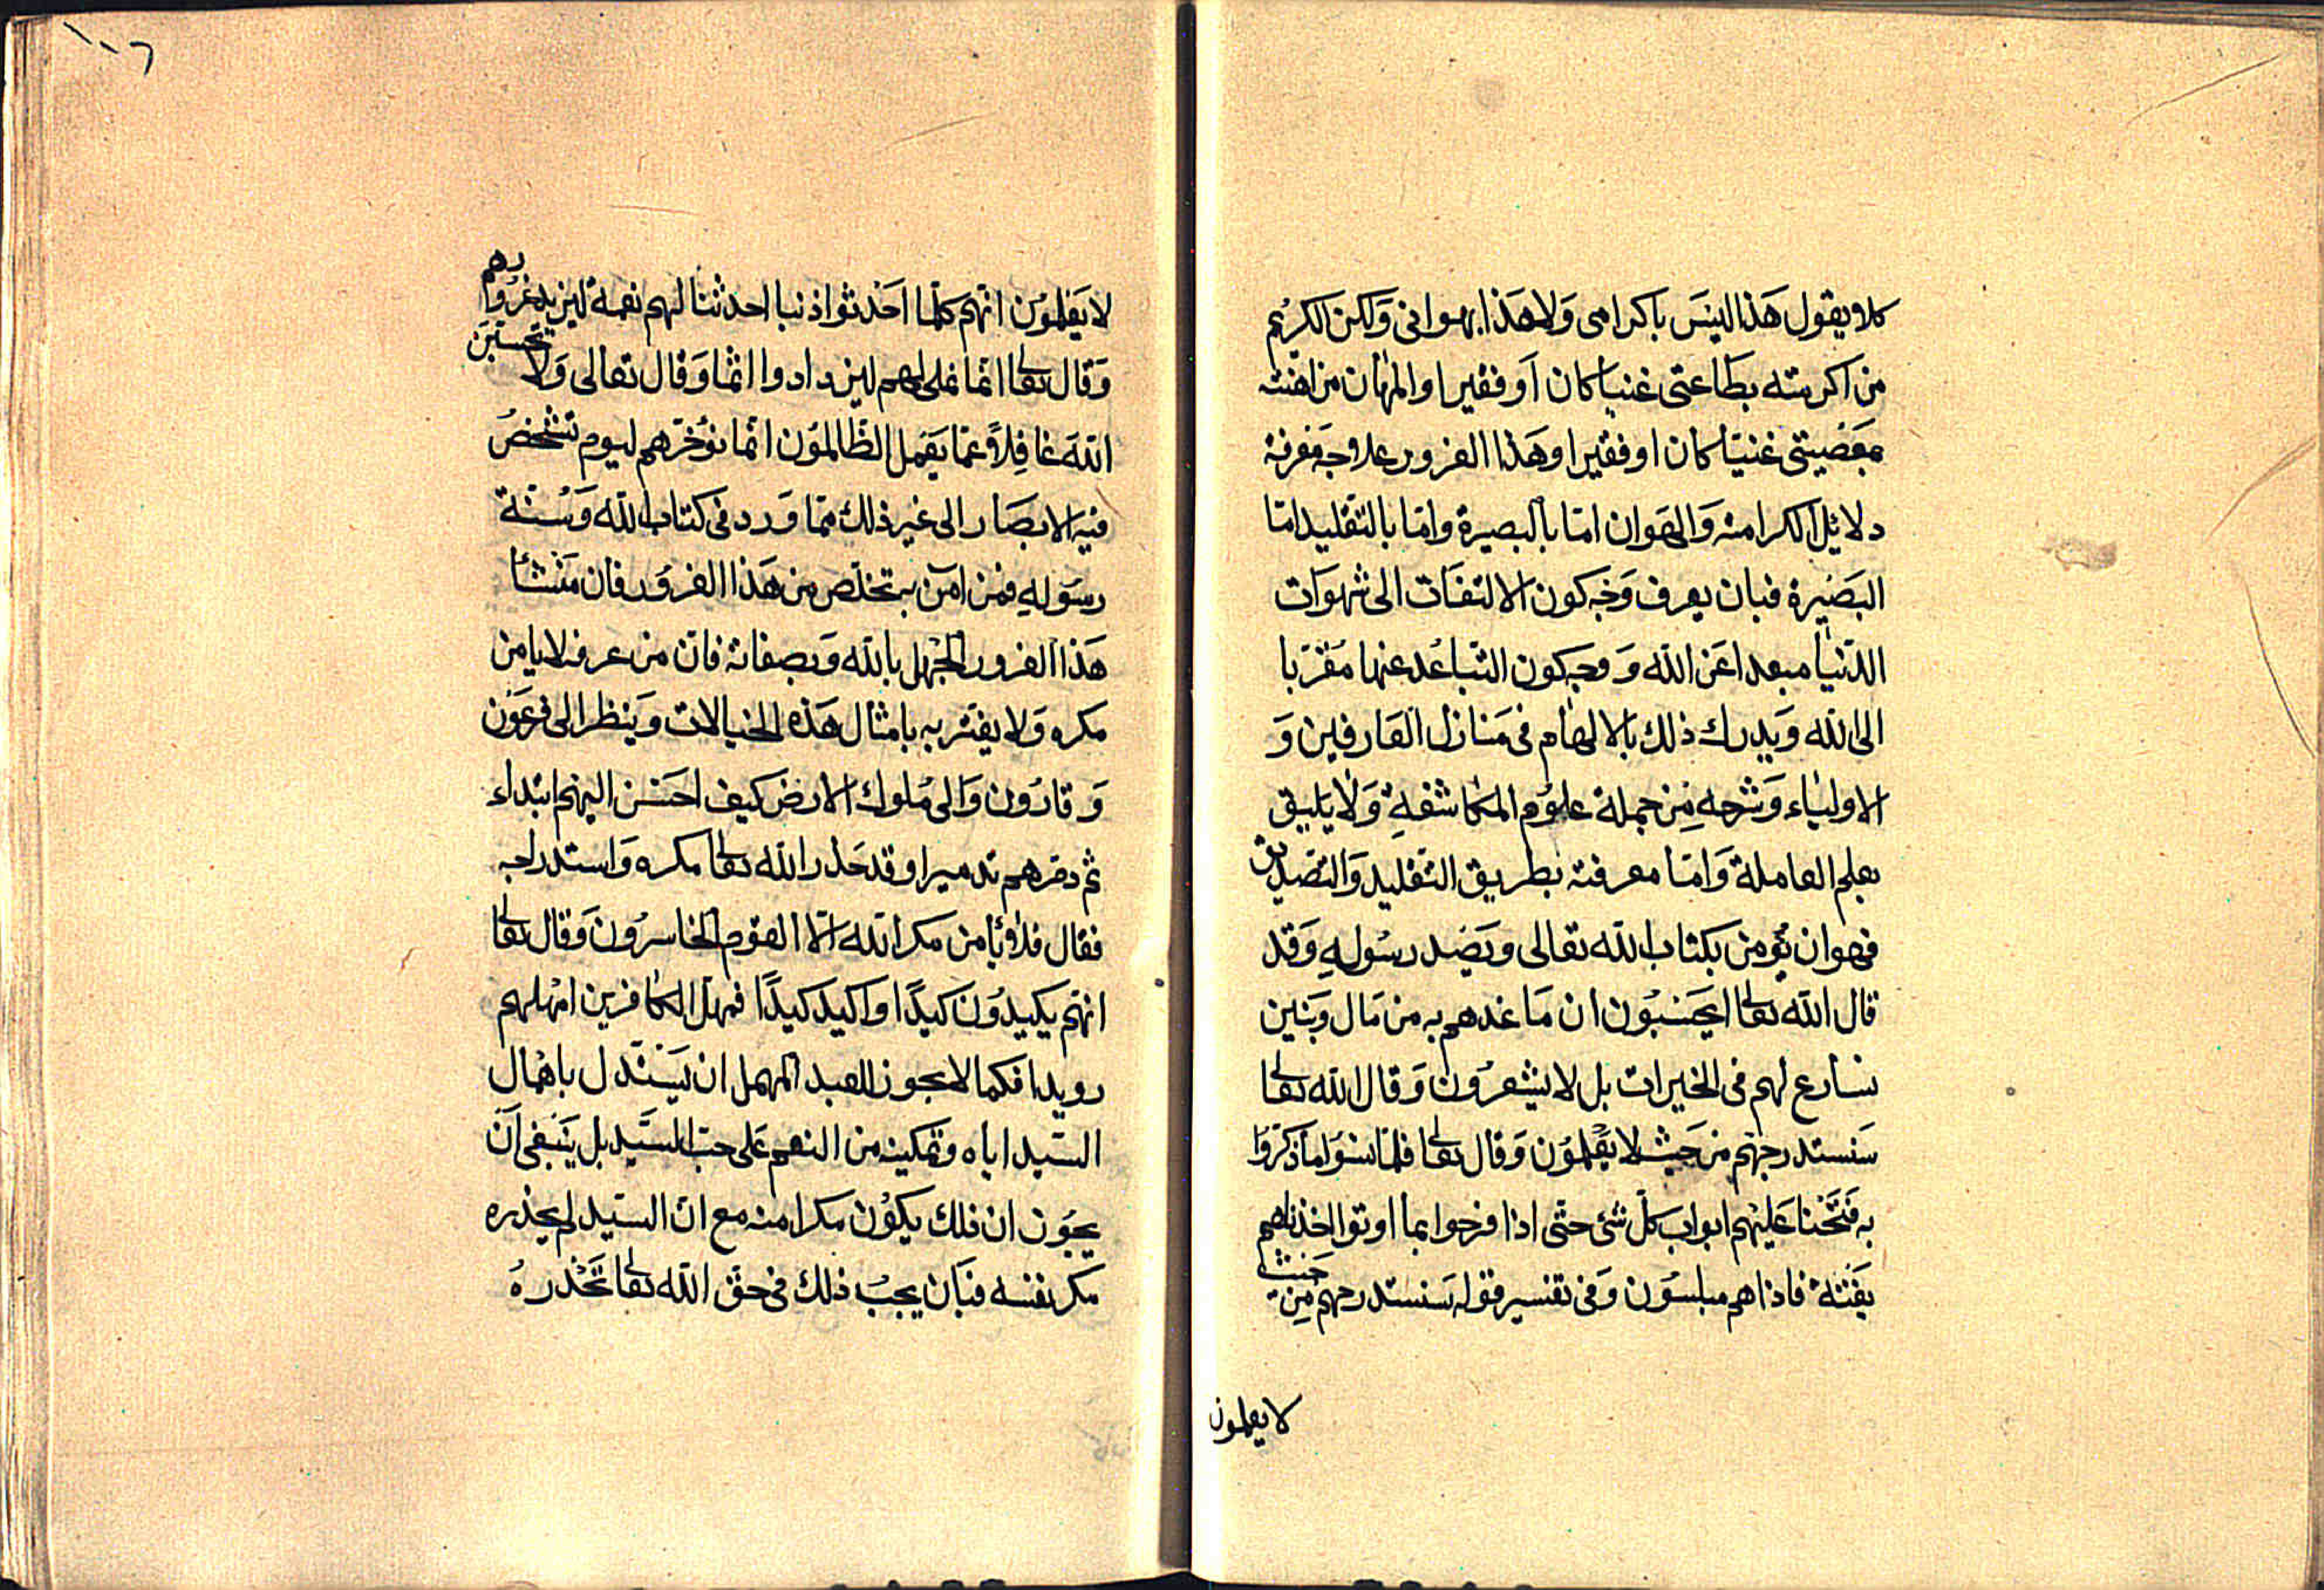 كلا ويقول هذا ليس باكرامى ولا هذا بهوانى ولكن الكريم
من اكرمته بطاعتى غنيا كان او فقيرا والمهان من اهنته
بمعصيتى غنيا كان او فقيرا وهذا الغرور علاجه معرفة
دلائل الكرامة والهوان اما بالبصيرة واما بالتقليد اما
البصيرة فبان يعرف وجه كون الالتفات الى شهوات
الدنيا مبعدا عن الله ووجه كون التباعد عنها مقربا
الى الله ويدرك ذلك بالالهام فى منازل العارفين و
الاولياء وشرحه من جملة علوم المكاشفة ولا يليق
بعلم العاملة واما معرفته بطريق التقليد والتصديق
فهو ان يؤمن بكتاب الله تعالى ويصد رسوله وقد
قال الله تعا ايحسبون ان ما غدهم به من مال وبنين
نسارع لهم فى الخيرات بل لا يشعرون وقال الله تعا
سنستدرجهم من حيث لا يعلمون وقال تعا فلما نسوا ما ذكروا
به فتحنا عليهم ابواب كل شئ حتى اذا فرحوا بما اوتوا اخذناهم
بغتة فاذا هم مبلسون وفى تفسير قوله سنستدرجهم من حيث
لا يعلمون
١٠٦
لا يعلمون انهم كلما احدثوا ذنبا احدثنا لهم نعمة ليزيد غرورهم
وقال تعا انما نملى لهم ليزدادوا اثما وقال تعالى ولا تحسبن
الله غافلا عما يعمل الظالمون انما نؤخرهم ليوم تشخص
فيه الابصار الى غير ذلك مما ورد فى كتاب الله وسنة
رسوله فمن امن به تخلص من هذا الغرور فان منشأ
هذا الغرور الجهل بالله وبصفاته فان من عرفه لا يامن
مكره ولا يغتر به بامثال هذه الخيالات وينظر الى فرعون
وقارون والى ملوك الارض كيف احسن اليهم ابتداء
ثم دمرهم تدميرا وقد حذر الله تعا مكره واستدراجه
فقال فلا يأمن مكر الله الا القوم الخاسرون وقال تعا
انهم يكيدون كيدا واكيد كيدا فمهل الكافرين امهلهم
رويدا فكما لا يجوز للعبد المهمل ان يستدل باهمال
السيد اياه وتمكينه من النعم على حب السيد بل ينبغى ان
يجوز ان ذلك يكون مكرا منه مع ان السيد لم يحذره
مكر نفسه فبان يجب ذلك فى حق الله تعا تحذره